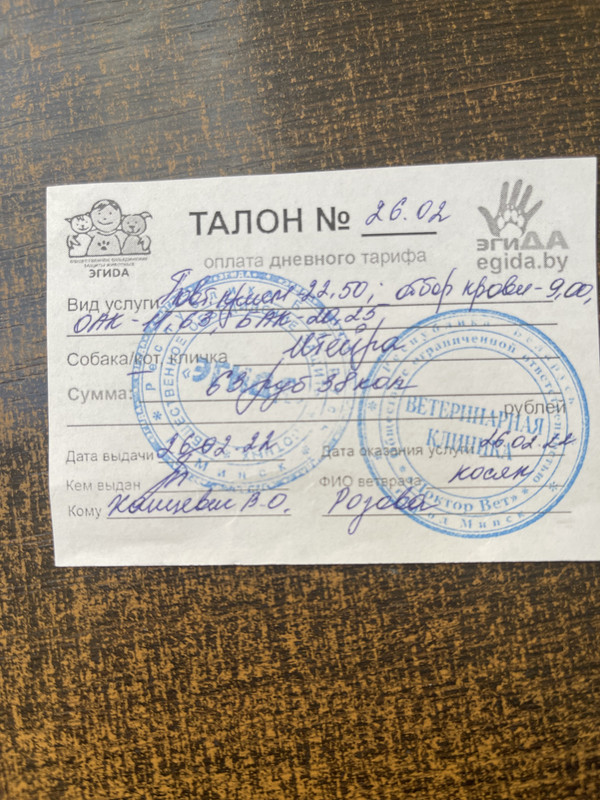 ТАЛОН № 26.02
ЭГИДА
ЭГИДА
egida.by
оплата дневного тарифа
Вид услуги Повт. прием - 22.50; отбор крови - 9,00,
ОАК - 11.63, БАК - 20,25
Собака/кот, кличка Шейра
Сумма: 63 руб 38 коп
рублей
Дата выдачи 26.02.22 Дата оказания услуги 26.02.22
Кем выдан ФИО ветврача Косяк
Кому В.О. Розова
ЭГИДА
МИНСК
Республика Беларусь
ВЕТЕРИНАРНАЯ
КЛИНИКА
«Доктор Вет»
город Минск